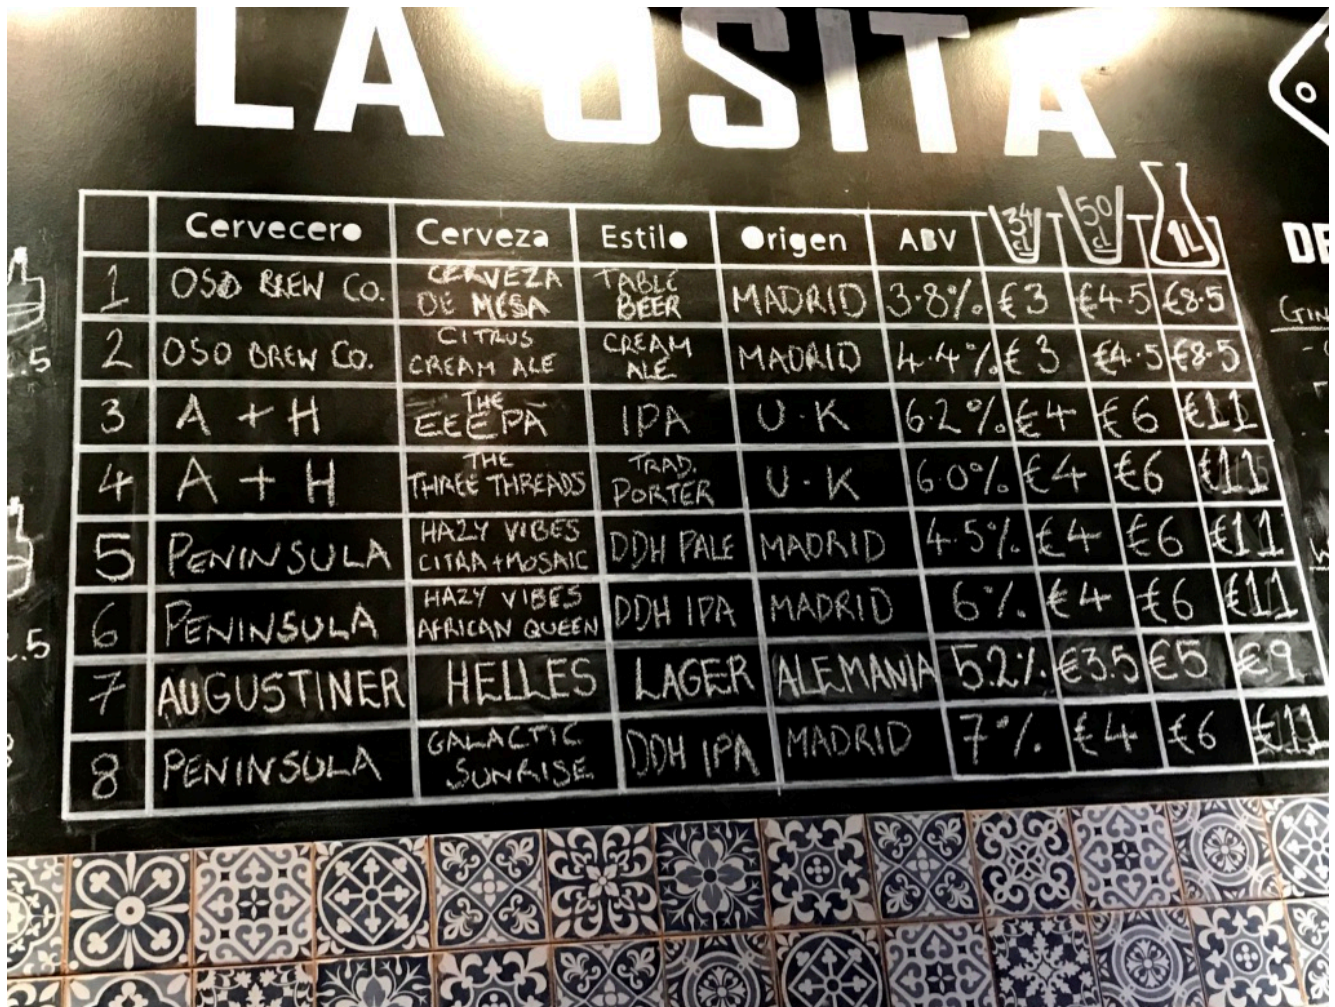 LA OSITA
Cervecero Cerveza Estilo Origen ABV 34 cl 50 cl 1L
1 OSO BREW CO. CERVEZA DE MESA TABLE BEER MADRID 3.8% €3 €4.5 €8.5
2 OSO BREW CO. CITRUS CREAM ALE CREAM ALE MADRID 4.4% €3 €4.5 €8.5
3 A + H THE EEEPA IPA U.K 6.2% €4 €6 €11
4 A + H THE THREE THREADS TRAD. PORTER U.K 6.0% €4 €6 €11
5 PENINSULA HAZY VIBES CITRA + MOSAIC DDH PALE MADRID 4.5% €4 €6 €11
6 PENINSULA HAZY VIBES AFRICAN QUEEN DDH IPA MADRID 6% €4 €6 €11
7 AUGUSTINER HELLES LAGER ALEMANIA 5.2% €3.5 €5 €9
8 PENINSULA GALACTIC SUNRISE DDH IPA MADRID 7% €4 €6 €11
DE
GIN
.5
.5